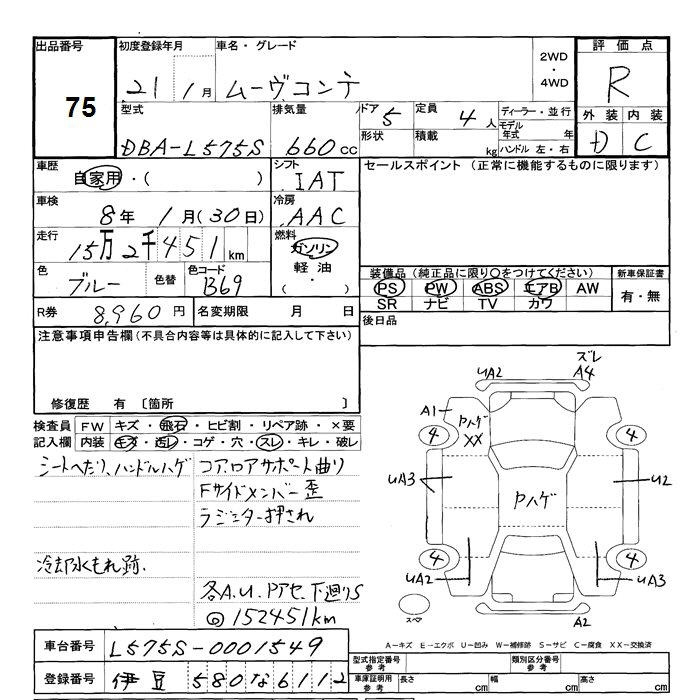 出品番号 75
初度登録年月 21 1月
車名・グレード ムーヴコンテ
2WD・4WD
評価点 R
外装 D 内装 C
型式 DBA-L575S
排気量 660cc
ドア 5 形状
定員 4人
積載 kg
ディーラー・並行
モデル年式 年
ハンドル 左・右
車歴 自家用・( )
シフト IAT
セールスポイント (正常に機能するものに限ります)
車検 8年 1月(30日)
冷房 AAC
走行 15万2千451km
燃料 ガソリン 軽油・( )
色 ブルー 色替
色コード B69
装備品(純正品に限り○をつけてください)
新車保証書 有・無
PS PW ABS エアB AW
SR ナビ TV カワ
R券 8,960円
名変期限 月 日
後日品
注意事項申告欄(不具合内容等は具体的に記入して下さい)
修復歴 有 〔箇所 〕
検査員記入欄
FW キズ・飛石・ヒビ割・リペア跡・×要
内装 キズ・汚レ・コゲ・穴・スレ・キレ・破レ
シートへたり、ハンドルハゲ
コア、ロアサポート曲り
Fサイドメンバー歪
ラジエター押され
冷却水もれ跡.
各A.U.Pアセ.下廻りS
@152451km
UA2 ズレ A4
A1 Pハゲ XX
4 4
UA3 Pハゲ U2
4 4
UA2 UA3
スペア A2
A-キズ E-エクボ U-凹み W-補修跡 S-サビ C-腐食 XX-交換済
車台番号 L575S-0001549
登録番号 伊豆 580 な 6112
型式指定番号 参考
類別区分番号 参考
車庫証明用 参考 長さ cm 幅 cm 高さ cm